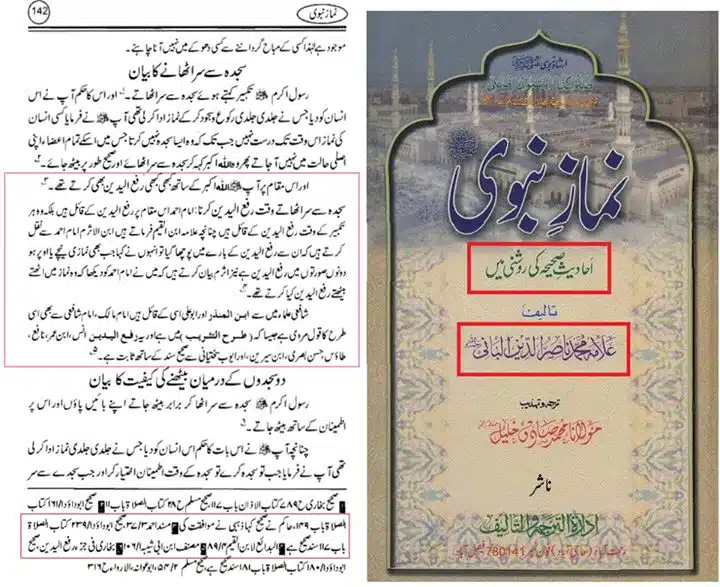 142
نماز نبوی
موجود ہے لہٰذا کسی کے مباح گرداننے سے کسی دھوکے میں نہیں آنا چاہئے۔
سجدہ سے سر اٹھانے کا بیان
رسول اکرم ﷺ تکبیر کہتے ہوئے سجدہ سے سر اٹھاتے۔ اور اس کا حکم آپ نے اس
انسان کو دیا جس نے جلدی جلدی رکوع وسجود کر کے نماز ادا کر لی تھی آپ ﷺ نے فرمایا کسی انسان
کی نماز اس وقت تک درست نہیں جب تک کہ وہ ایسا سجدہ نہیں کرتا جس میں اسکے تمام اعضاء اپنی
اصلی حالت میں نہیں آ جاتے پھر وہ اللہ اکبر کہہ کر سجدہ سے سر اٹھائے اور صحیح طور پر بیٹھ جائے۔
اور اس مقام پر آپ ﷺ اللہ اکبر کے ساتھ کبھی کبھی رفع الیدین بھی کرتے تھے۔
سجدہ سے سر اٹھاتے وقت رفع الیدین کرنا: امام احمد اس مقام پر رفع الیدین کے قائل ہیں بلکہ وہ ہر
تکبیر کے وقت رفع الیدین کے قائل ہیں چنانچہ علامہ ابن القیم فرماتے ہیں ابن الاثرم امام احمد سے نقل
کرتے ہیں کہ ان سے رفع الیدین کے بارے میں پوچھا گیا تو انہوں نے کہا جب بھی نمازی نیچے یا اوپر ہو
دونوں صورتوں میں رفع الیدین ہے نیز اثرم بیان کرتے ہیں کہ میں نے امام احمد کو دیکھا کہ وہ نماز میں اٹھتے
بیٹھتے رفع الیدین کیا کرتے تھے۔
شافعی علماء میں سے ابن المنذر اور ابو علی اسی کے قائل ہیں امام مالک، امام شافعی سے بھی اسی
طرح کا قول مروی ہے جیسا کہ طرح التثریب میں ہے اور یہ رفع الیدین انس، ابن عمر، نافع،
طاؤس، حسن بصری، ابن سیرین، اور ایوب سختیانی سے صحیح سند کے ساتھ ثابت ہے۔
دو سجدوں کے درمیان بیٹھنے کی کیفیت کا بیان
رسول اکرم ﷺ سجدہ سے سر اٹھا کر برابر بیٹھ جاتے اپنے بائیں پاؤں اور اس پر
اطمینان کے ساتھ بیٹھ جاتے۔
چنانچہ آپ ﷺ نے اس بات کا حکم اس انسان کو دیا جس نے جلدی جلدی نماز ادا کر لی
تھی آپ نے فرمایا جب تو سجدہ کرے تو سجدہ کے وقت اطمینان اختیار کر اور جب سجدے سے سر
صحیح بخاری ح ۷۸۹ کتاب الاذان باب ۱۱۷ صحیح مسلم ح ۲۸ کتاب الصلاۃ باب ۱۱ صحیح ابوداؤد ۱/۱۶۱ کتاب
الصلاۃ باب ۱۴۹، حاکم نے صحیح کہا ذہبی نے موافقت کی مسند احمد ۳/۴۷ صحیح ابوداؤد ۱/۲۳۹ کتاب الصلاۃ
باب ۱۱۷ سند صحیح ہے البدائع لابن القیم ۳/۸۹ مصنف ابن ابی شیبہ ۱/۱۰۶ بخاری فی جزء رفع الیدین، صحیح
ابوداؤد ۱/۱۸۰ کتاب الصلاۃ باب ۱۱۸ سند صحیح ہے، مسلم ۲/۵۴، ابوعوانہ، الارواء ح ۳۱۶
ارشاد نبوی ﷺ
صلوا كما رأيتموني أصلي
نماز نبوی
احادیث صحیحہ کی روشنی میں
تالیف
علامہ محمد ناصر الدین البانی
ترجمہ و تہذیب
مولانا محمد صادق خلیل
ناشر
ادارۃ الترجمۃ والتالیف
فیصل آباد 780141